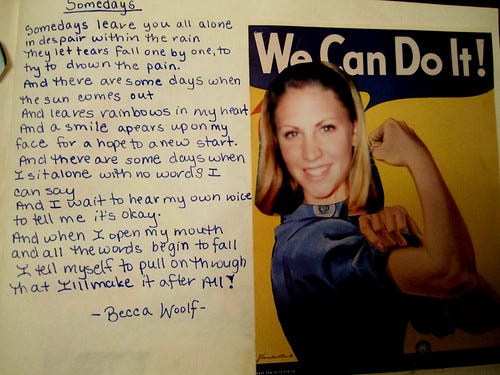 Somedays
Somedays leave you all alone
in despair within the rain
They let tears fall one by one, to
try to drown the pain.
And there are some days when
the sun comes out
And leaves rainbows in my heart
And a smile apears upon my
face for a hope to a new start.
And there are some days when
I sit alone with no words I
can say
And I wait to hear my own voice
to tell me it's okay.
And when I open my mouth
and all the words begin to fall
I tell myself to pull on through
that I'll make it after All!
-Becca Woolf-
We Can Do It!